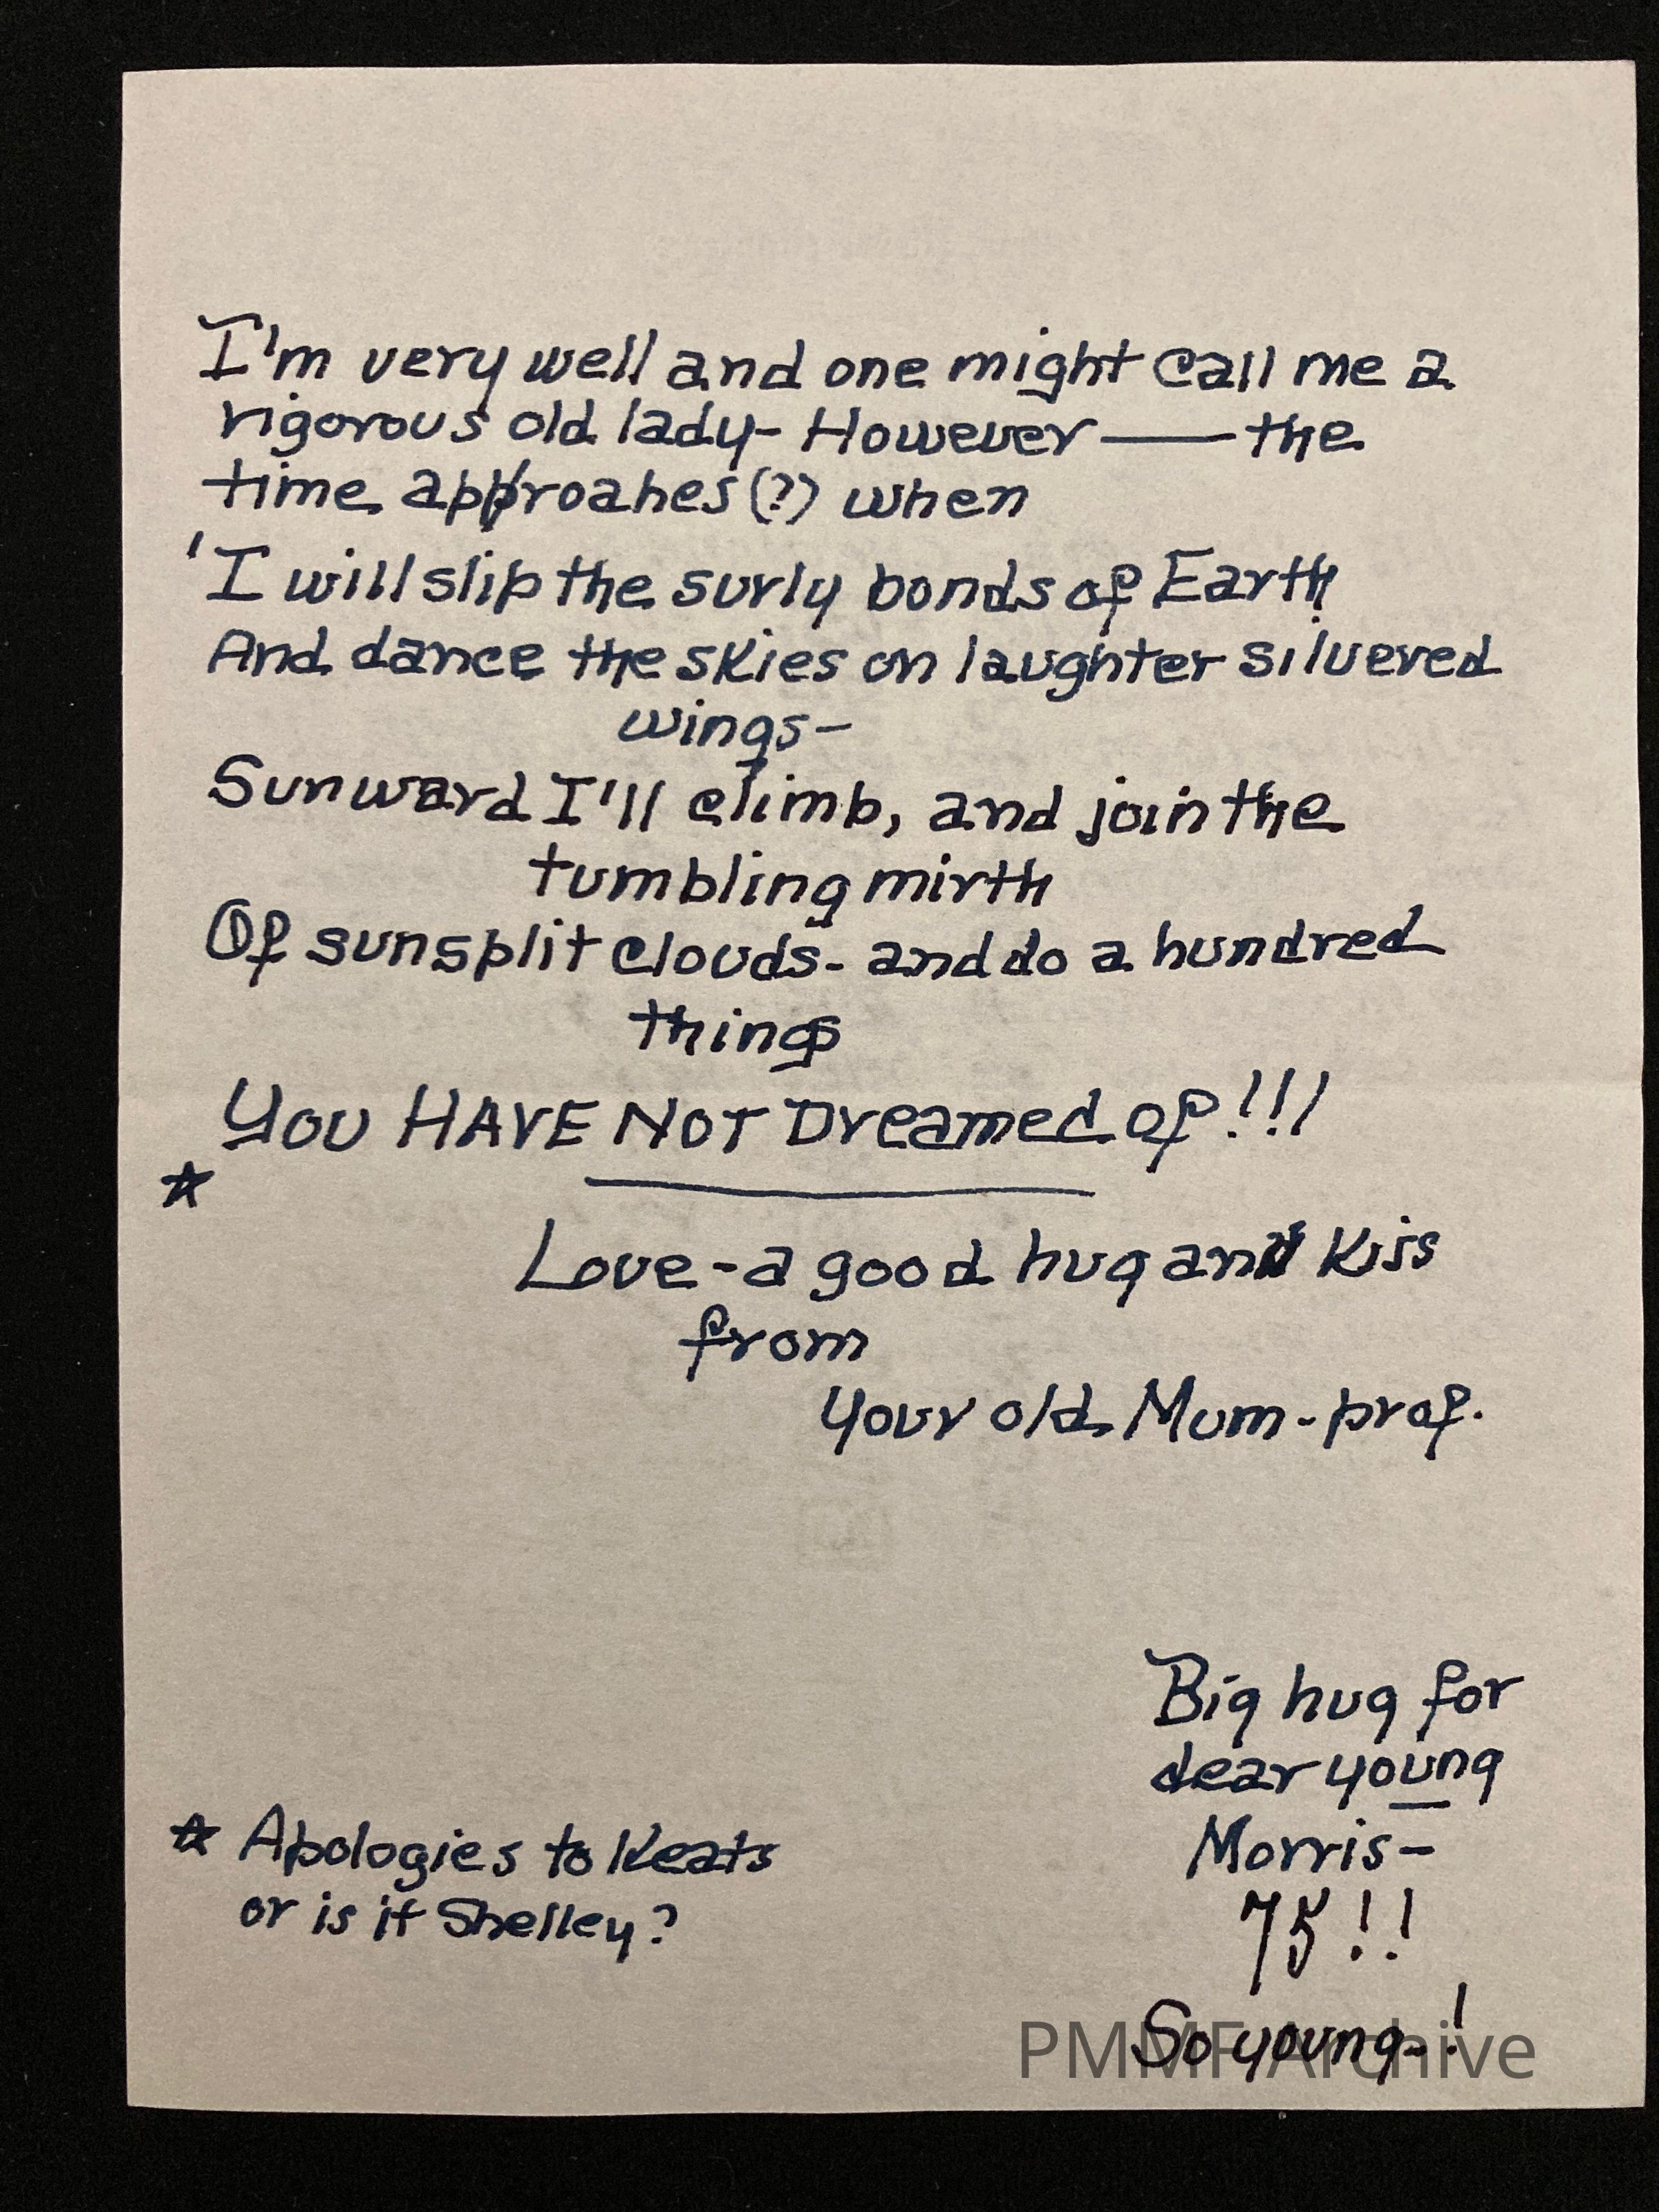 I'm very well and one might call me a
rigorous old lady- However — the
time approahes (?) when
'I will slip the surly bonds of Earth
And dance the skies on laughter silvered
wings-
Sunward I'll climb, and join the
tumbling mirth
Of sunsplit clouds- and do a hundred
things
YOU HAVE NOT Dreamed of!!!
☆
Love - a good hug and kiss
from
your old Mum-prof.
Big hug for
dear young
Morris-
75!!
So young-!
☆ Apologies to Keats
or is it Shelley?
PMMF Archive